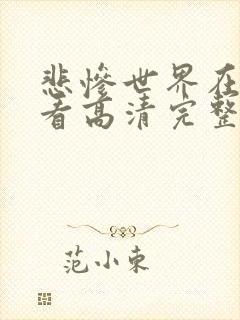 悲惨世界在
看高清完整
范小东